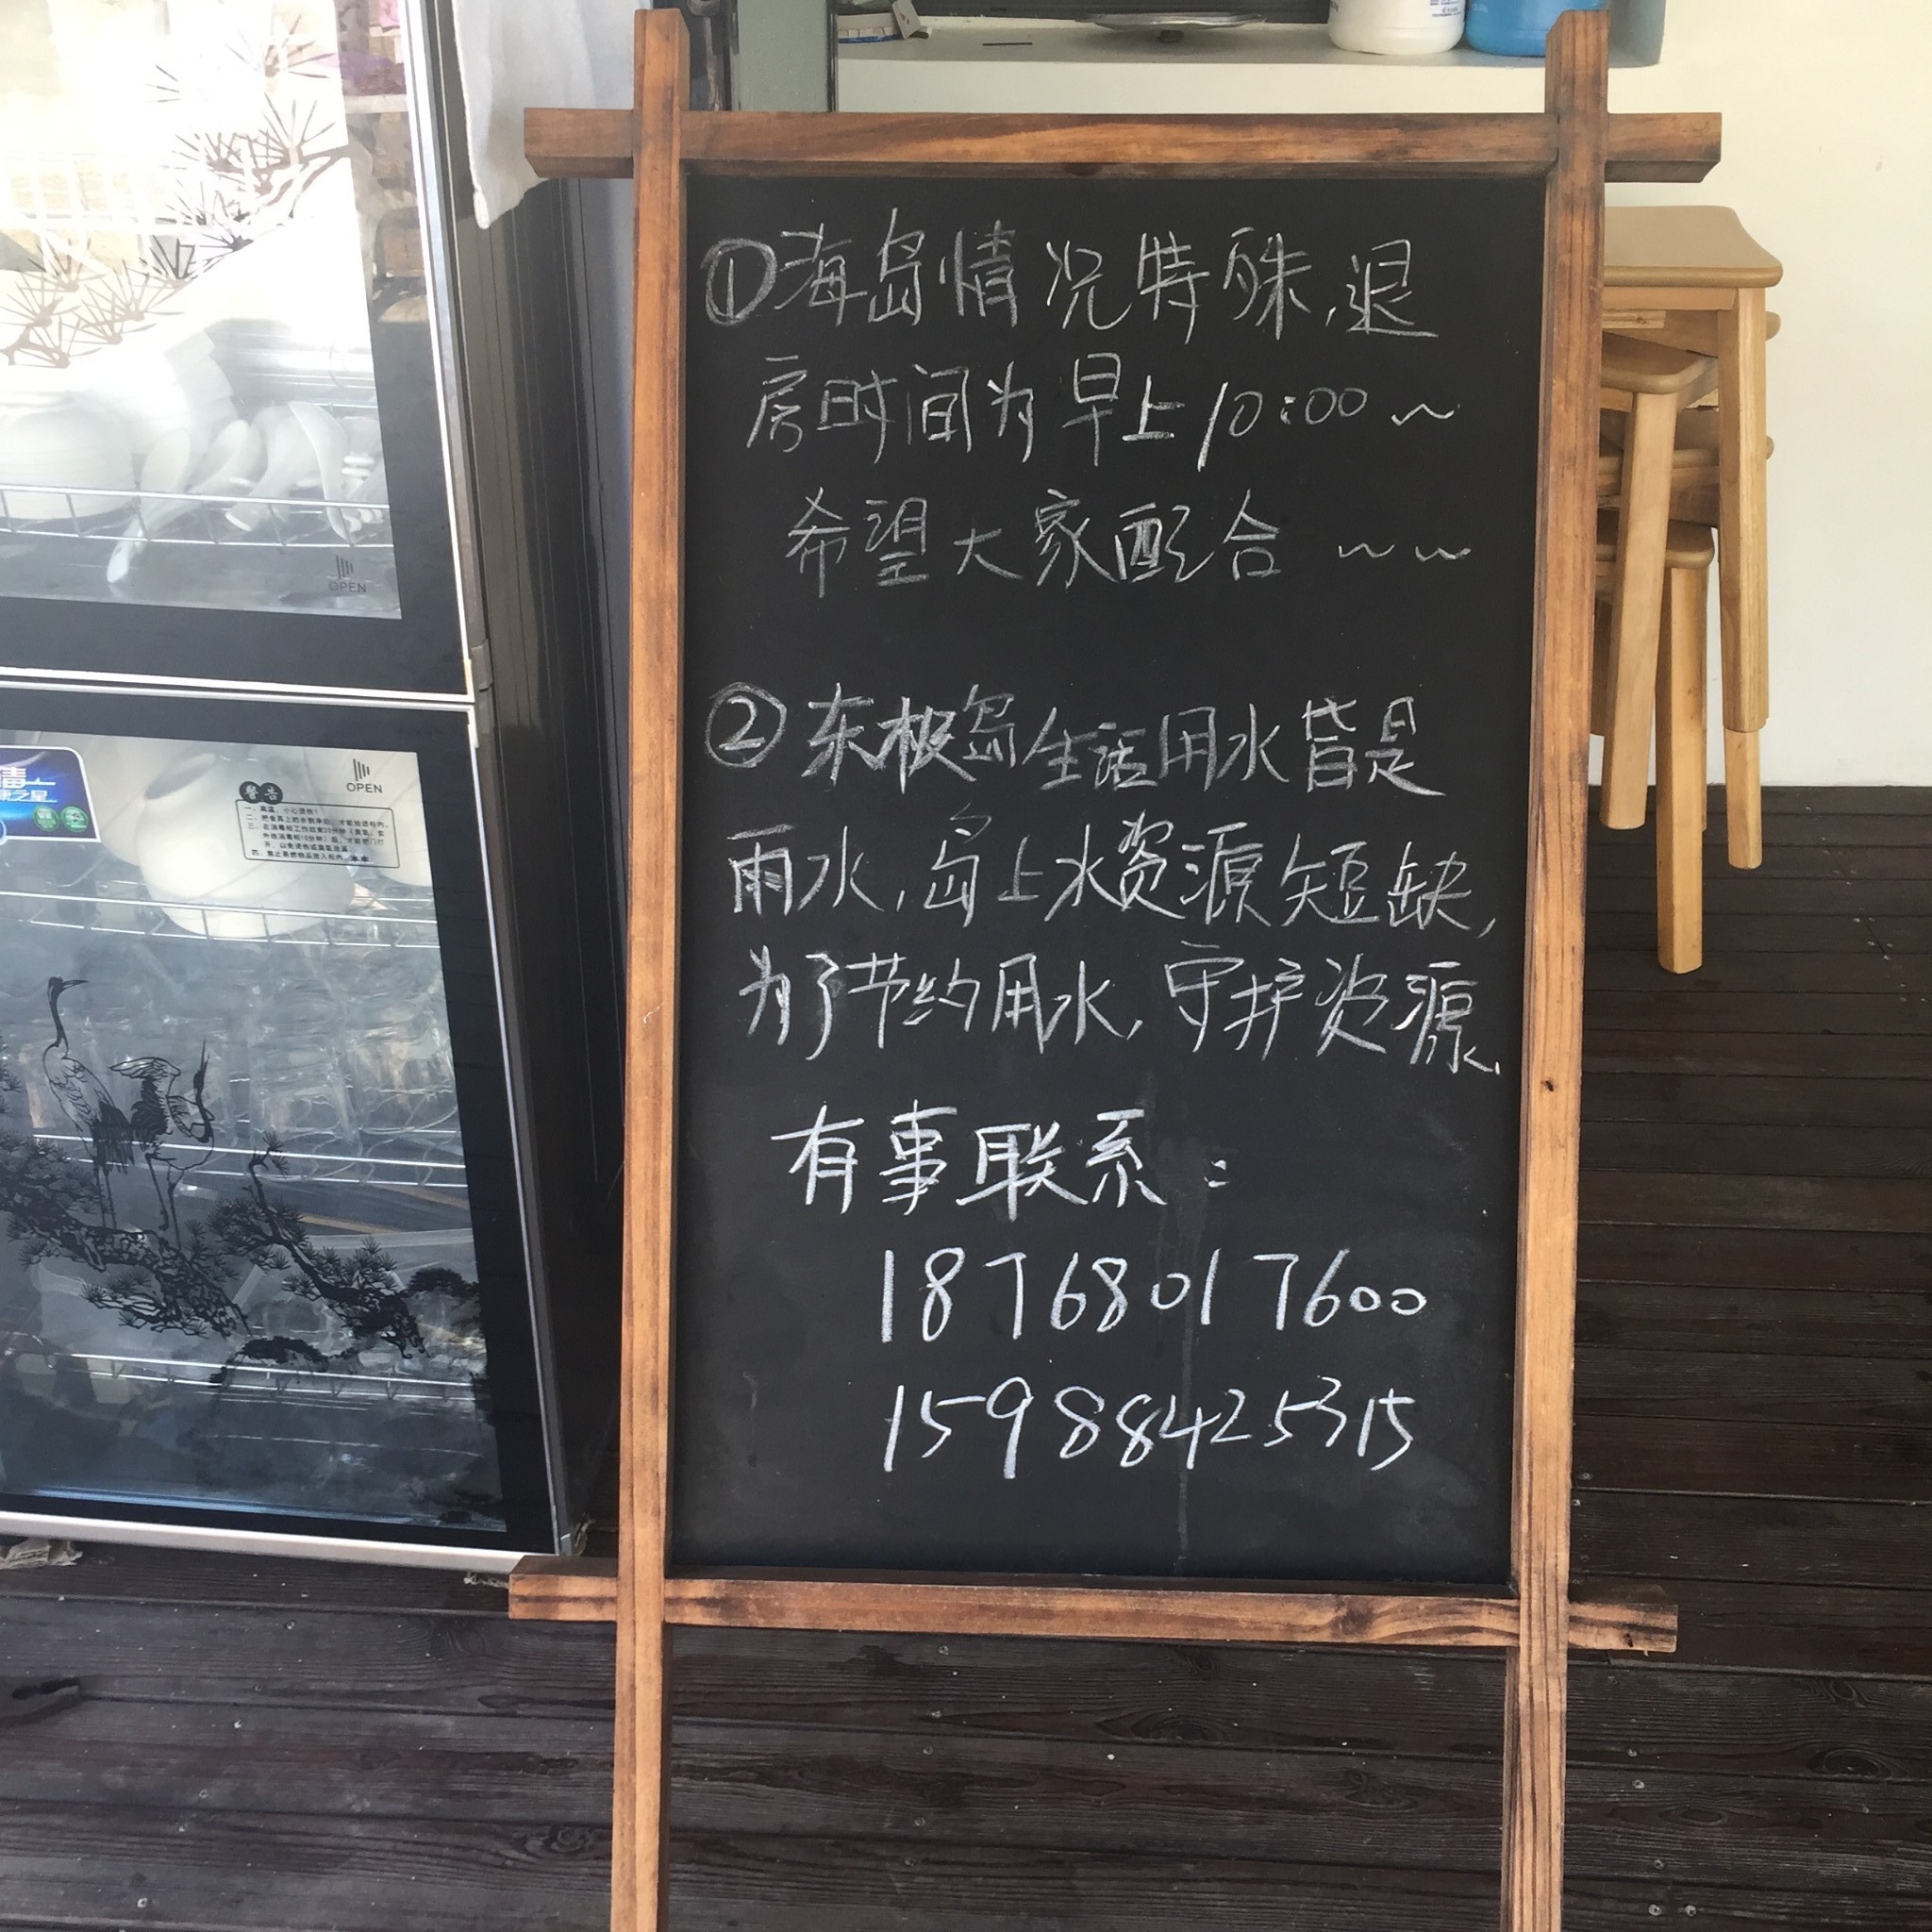 ①海岛情况特殊,退
房时间为早上10:00~
希望大家配合~~
②东极岛生活用水皆是
雨水,岛上水资源短缺,
为了节约用水,守护资源.
有事联系:
18768017600
15988425315
OPEN
OPEN
警告
康之星